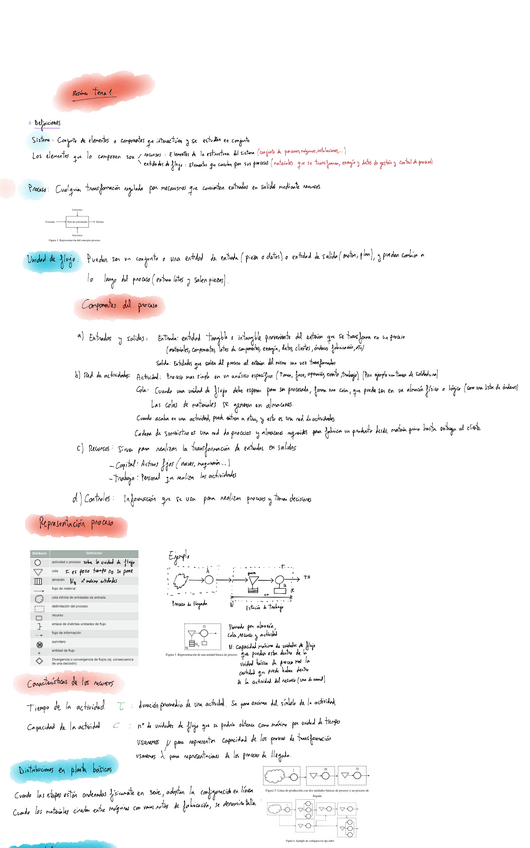 Resumen Tema 1
Definiciones
Sistema: Conjunto de elementos o componentes que interactúan y se estudian en conjunto
Los elementos que lo componen son
recursos: Elementos de la estructura del sistema (conjunto de personas, máquinas, instalaciones,...)
entidades de flujo: Elementos que circulan por sus procesos (materiales que se transforman, energía y datos de gestión y control de procesos)
Proceso: Cualquier transformación regulada por mecanismos que convierten entradas en salidas mediante recursos
Figura 1. Representación del concepto proceso
Unidad de flujo: Pueden ser un conjunto o una entidad de entrada (pieza o datos) o entidad de salida (motor, plan), y pueden cambiar a
lo largo del proceso (entran lotes y salen piezas).
Componentes del proceso
a) Entradas y salidas: Entrada: entidad tangible o intangible proveniente del exterior que se transforma en un proceso
(materiales, componentes, lotes de componentes, energía, datos, clientes, órdenes fabricación, etc)
Salida: Entidades que salen del proceso al exterior del mismo una vez transformadas
b) Red de actividades: Actividad: Proceso más simple en un análisis específico (Tarea, fase, operación, evento, trabajo) (Por ejemplo una tarea de soldadura)
Cola: Cuando una unidad de flujo debe esperar para ser procesada, forma una cola, que puede ser en un almacén físico o lógico (como una lista de órdenes)
Las colas de materiales se generan en almacenes
Cuando acaba en una actividad, puede entrar a otra, y esto es una red de actividades
Cadena de suministro es una red de procesos y almacenes seguidos para fabricar un producto desde materia prima hasta entrega al cliente
c) Recursos: Sirven para realizar la transformación de entradas en salidas
- Capital: Activos fijos (naves, maquinaria...)
- Trabajo: Personal que realiza las actividades
d) Controles: Información que se usa para realizar procesos y tomar decisiones
Representación proceso
Símbolo Definición
actividad o proceso sobre la unidad de flujo
cola
almacén
flujo de material
cola infinita de entidades de entrada
delimitación del proceso
recurso
enlace de distintas unidades de flujo
flujo de información
sumidero
entidad de flujo
Divergencia o convergencia de flujos (ej. consecuencia de una decisión)
Ejemplo
Proceso de llegada
Estación de Trabajo
TH
Formado por almacén,
cola, recurso y actividad
N: capacidad máxima de unidades de flujo
que pueden estar dentro de la
unidad básica de proceso más la
cantidad que puede haber dentro
de la actividad del recurso
Figura 3. Representación de una unidad básica de proceso
Características de los recursos
Tiempo de la actividad τ: duración promedio de una actividad. Se pone encima del símbolo de la actividad
Capacidad de la actividad C: nº de unidades de flujo que se podría obtener como máximo por unidad de tiempo
usaremos μ para representar capacidad de los procesos de transformación
usaremos λ para representaciones de los procesos de llegada
Distribuciones en planta básicas
Cuando las etapas están ordenadas físicamente en serie, adoptan la configuración en línea
Cuando los materiales circulan entre máquinas con varias rutas de fabricación, se denomina taller